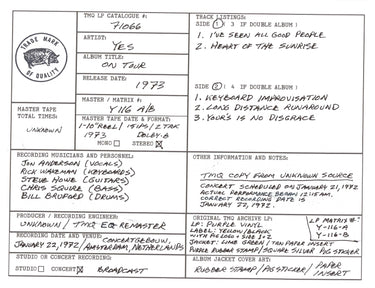 TMQ LP CATALOGUE #:
71066
ARTIST:
YES
ALBUM TITLE:
ON TOUR
RELEASE DATE:
1973
MASTER / MATRIX #:
Y 116 A/B
MASTER TAPE DATE & FORMAT:
1-10" REEL / 15 IPS / 2 TRK
1973 DOLBY-B
MONO STEREO
TRADE MARK
OF QUALITY
MASTER TAPE
TOTAL TIMES:
UNKNOWN
TRACK LISTINGS:
SIDE 1 ( 3 IF DOUBLE ALBUM )
1. I'VE SEEN ALL GOOD PEOPLE
2. HEART OF THE SUNRISE
SIDE 2 ( 4 IF DOUBLE ALBUM )
1. KEYBOARD IMPROVISATION
2. LONG DISTANCE RUNAROUND
3. YOUR'S IS NO DISGRACE
RECORDING MUSICIANS AND PERSONNEL:
JON ANDERSON (VOCALS)
RICK WAKEMAN (KEYBOARDS)
STEVE HOWE (GUITARS)
CHRIS SQUIRE (BASS)
BILL BRUFORD (DRUMS)
OTHER INFORMATION AND NOTES:
TMQ COPY FROM UNKNOWN SOURCE
CONCERT SCHEDULED ON JANUARY 21, 1972
ACTUAL PERFORMANCE BEGAN 12:15 AM.
CORRECT RECORDING DATE IS
JANUARY 22, 1972.
PRODUCER / RECORDING ENGINEER:
UNKNOWN / TMQ EQ REMASTER
RECORDING DATE AND VENUE:
JANUARY 22, 1972 / CONCERTGEBOUW, AMSTERDAM, NETHERLANDS
STUDIO OR CONCERT RECORDING:
STUDIO CONCERT BROADCAST
ORIGINAL TMQ ARCHIVE LP:
LP: PURPLE VINYL
LABEL: YELLOW/BLANK
WITH PIG LOGO + SIDE 1+2
JACKET: LIME GREEN / TAN PAPER INSERT
PURPLE RUBBER STAMP / SQUARE SILVER PIG STICKER
LP MATRIX #:
Y-116-A
Y-116-B
ALBUM JACKET COVER ART:
RUBBER STAMP / PIG STICKER / PAPER INSERT